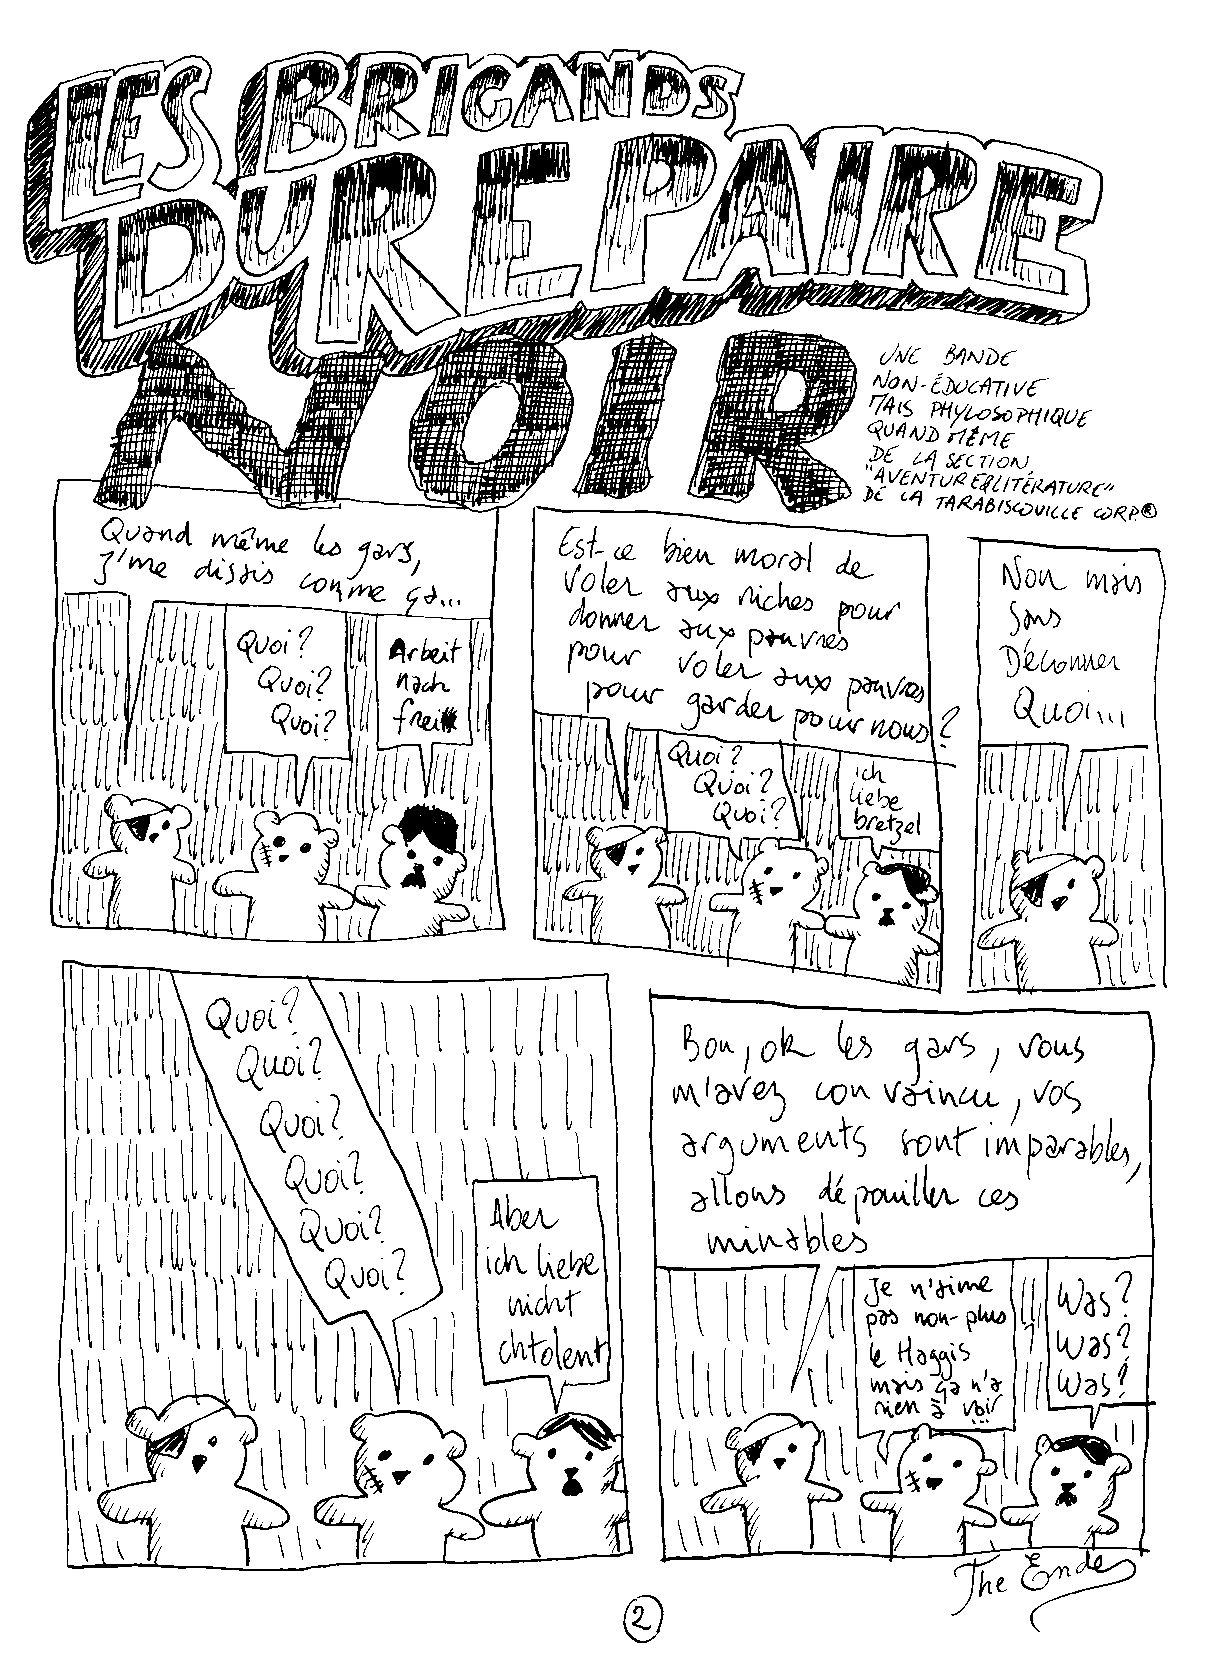 LES BRIGANDS
DU REPAIRE
NOIR
UNE BANDE
NON-ÉDUCATIVE
MAIS PHYLOSOPHIQUE
QUAND MÊME
DE LA SECTION
"AVENTURE&LITÉRATURE"
DE LA TARABISCOUILLE CORP.®
Quand même les gars,
J'me disais comme ça...
Quoi?
Quoi?
Quoi?
Arbeit
nach
frei
Est-ce bien moral de
voler aux riches pour
donner aux pauvres
pour voler aux pauvres
pour garder pour nous?
Quoi?
Quoi?
Quoi?
ich
liebe
bretzel
Non mais
sans
Déconner
Quoi...
Quoi?
Quoi?
Quoi?
Quoi?
Quoi?
Quoi?
Aber
ich liebe
nicht
chtolent
Bon, ok les gars, vous
m'avez convaincu, vos
arguments sont imparables,
allons dépouiller ces
minables
Je n'aime
pas non-plus
le Haggis
mais ça n'a
rien à voir
Was?
Was?
Was?
The Ende
2